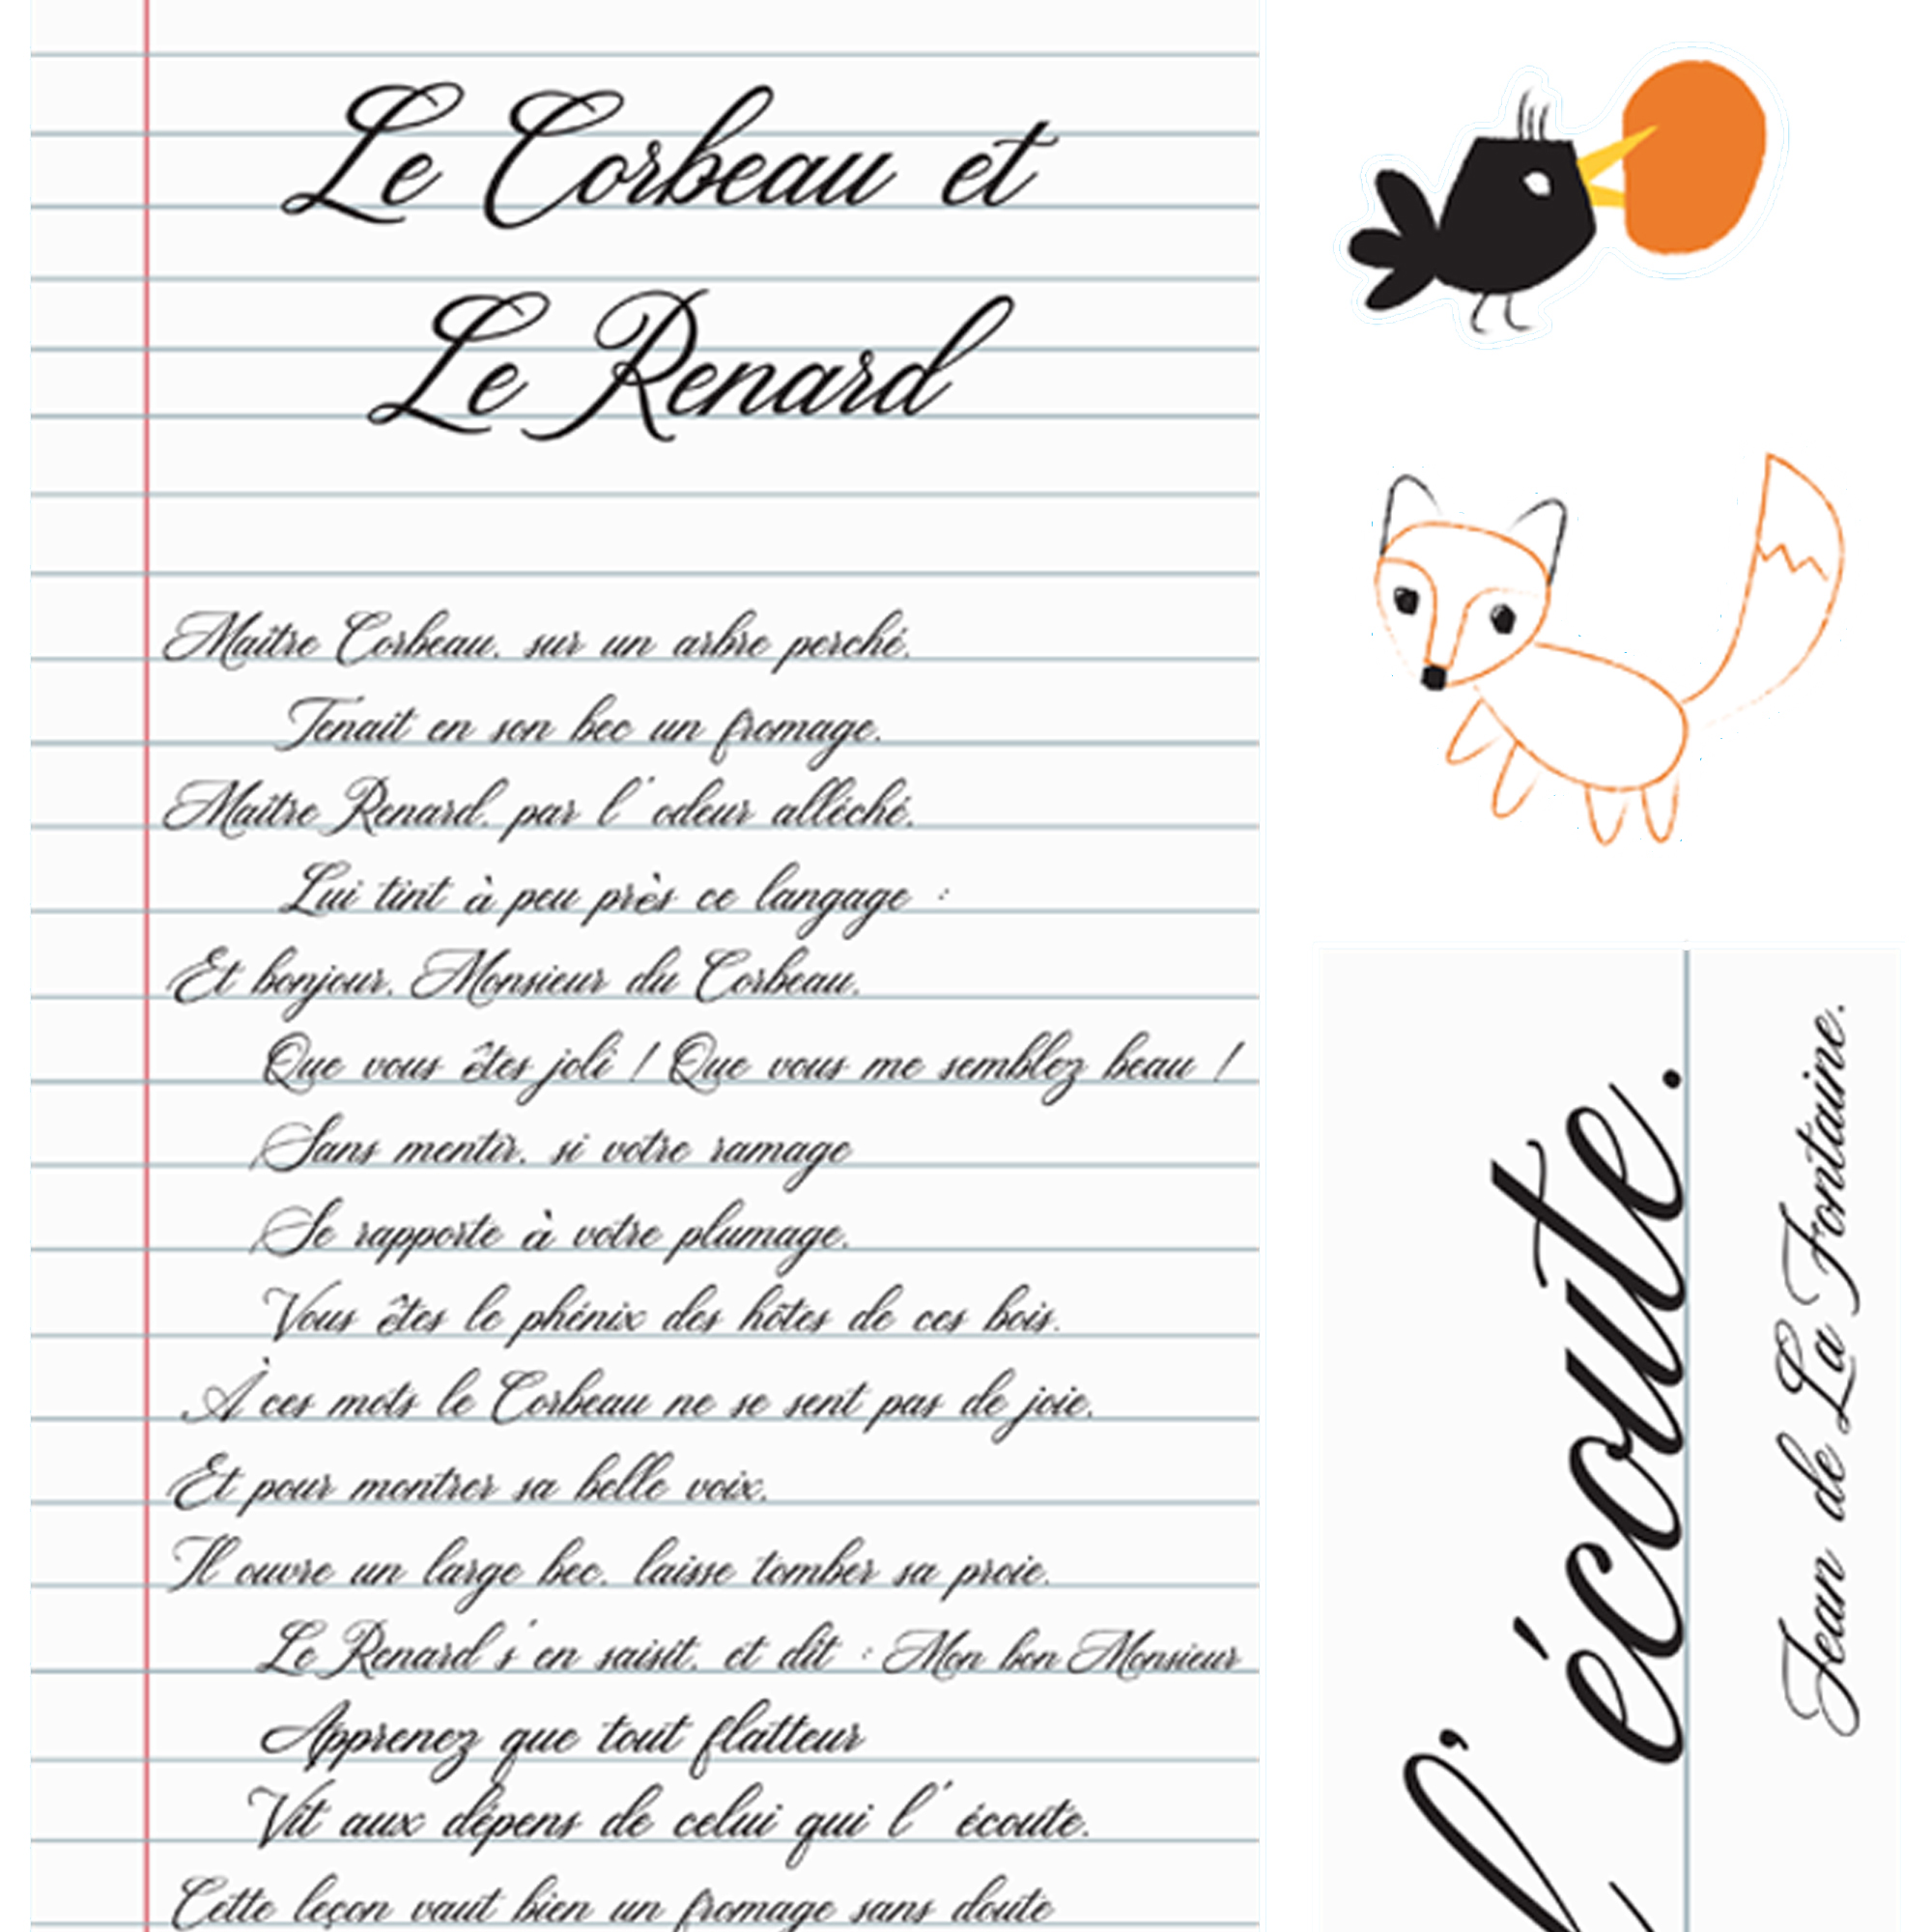 Le Corbeau et
Le Renard
Maître Corbeau, sur un arbre perché,
Tenait en son bec un fromage.
Maître Renard, par l'odeur alléché,
Lui tint à peu près ce langage :
Et bonjour, Monsieur du Corbeau,
Que vous êtes joli ! Que vous me semblez beau !
Sans mentir, si votre ramage
Se rapporte à votre plumage,
Vous êtes le phénix des hôtes de ces bois.
À ces mots le Corbeau ne se sent pas de joie,
Et pour montrer sa belle voix,
Il ouvre un large bec, laisse tomber sa proie.
Le Renard s'en saisit, et dit : Mon bon Monsieur
Apprenez que tout flatteur
Vit aux dépens de celui qui l'écoute.
Cette leçon vaut bien un fromage sans doute
l'écoute.
Jean de La Fontaine.